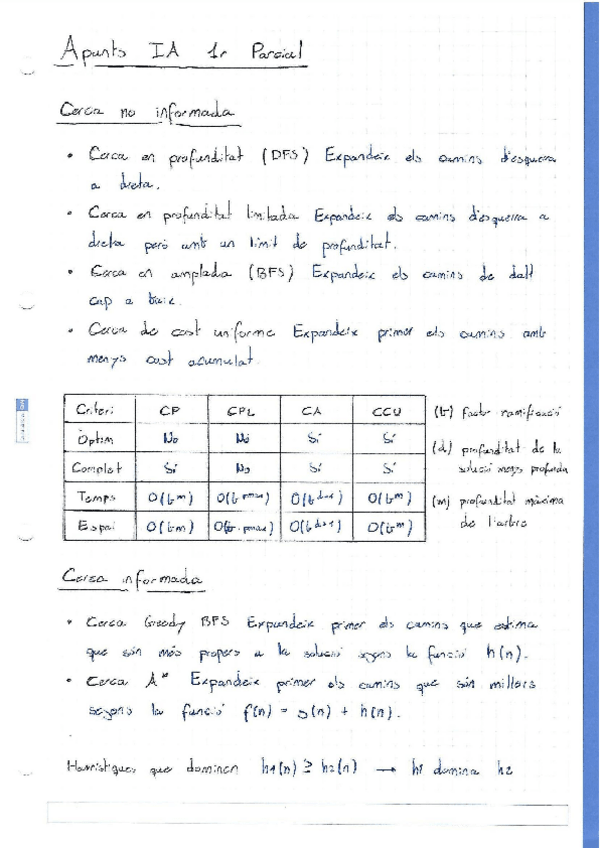 Apunts IA 1r Parcial
Cerca no informada
• Cerca en profunditat (DFS) Expandeix els camins d'esquerra
a dreta.
• Cerca en profunditat limitada Expandeix els camins d'esquerra a
dreta però amb un límit de profunditat.
• Cerca en amplada (BFS) Expandeix els camins de dalt
cap a baix.
• Cerca de cost uniforme Expandeix primer els camins amb
menys cost acumulat.
Criteri CP CPL CA CCU
Òptim No No Sí Sí
Complet Sí No Sí Sí
Temps O(b^m) O(b^pmax) O(b^d+1) O(b^m)
Espai O(b·m) O(b·pmax) O(b^d+1) O(b^m)
(b) factor ramificació
(d) profunditat de la
solució menys profunda
(m) profunditat màxima
de l'arbre
Cerca informada
• Cerca Greedy BFS Expandeix primer els camins que estima
que són més propers a la solució segons la funció h(n).
• Cerca A* Expandeix primer els camins que són millors
segons la funció f(n) = g(n) + h(n).
Heurístiques que dominen h1(n) ≥ h2(n) → h1 domina h2